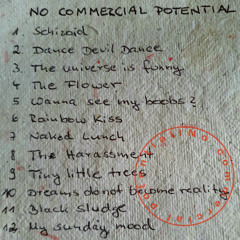 NO COMMERCIAL POTENTIAL
1 Schizoid
2. Dance Devil Dance
3. The universe is funny
4 The Flower
5 Wanna see my boobs?
6 Rainbow Kiss
7 Naked Lunch
8 The Harassment
9 Tiny little trees
10 Dreams do not become reality
11 Black sludge
12 My sunday mood
No commercial potential